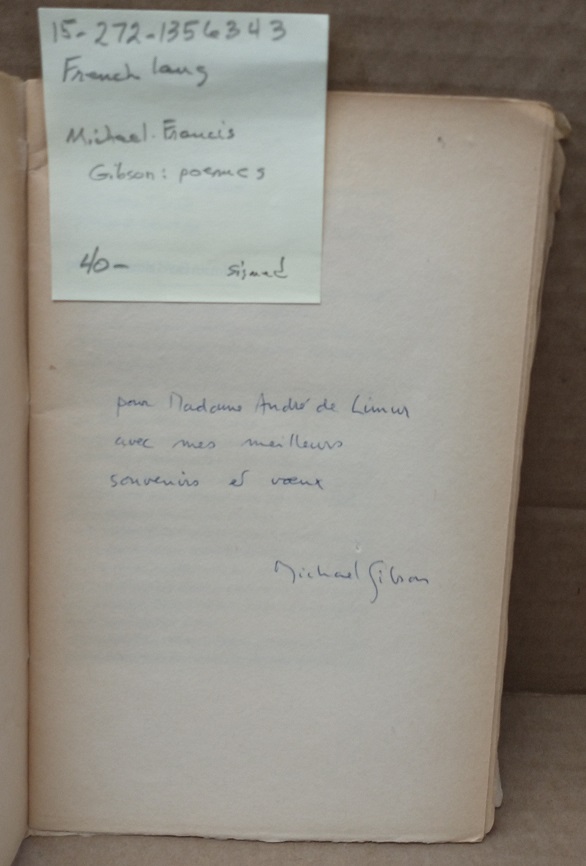 15-272-1356343
French lang
Michael-Francis
Gibson: poemes
40-
signed
pour Madame André de Limur
avec mes meilleurs
souvenirs et vœux
Michael Gibson